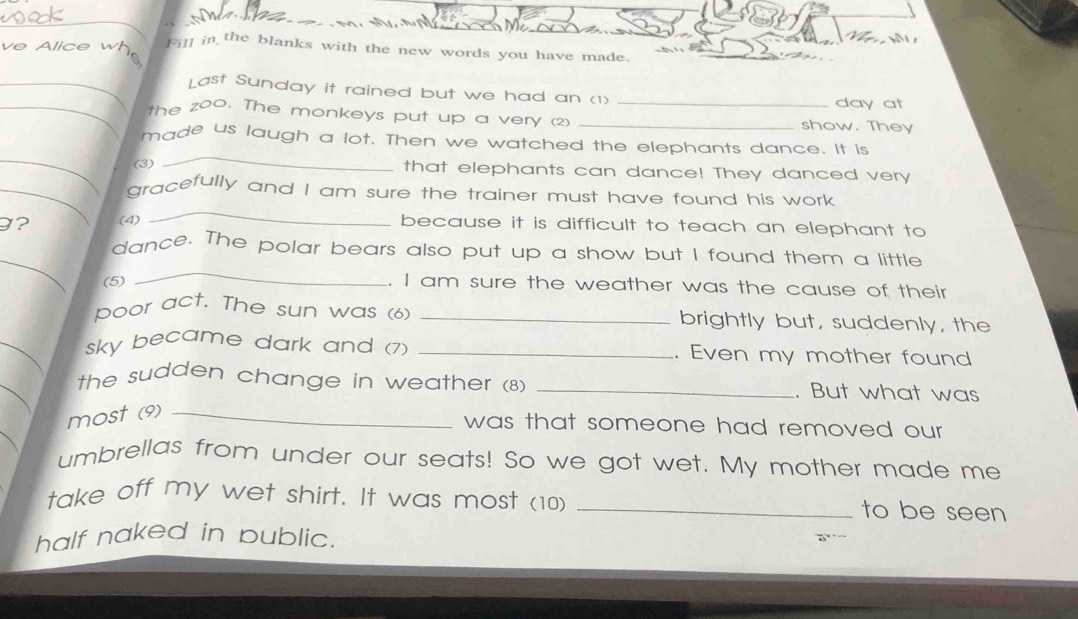 ve Alice who
Fill in the blanks with the new words you have made.
Last Sunday it rained but we had an (1) ____________ day at
the zoo. The monkeys put up a very (2) ____________ show. They
made us laugh a lot. Then we watched the elephants dance. It is
(3) ____________ that elephants can dance! They danced very
gracefully and I am sure the trainer must have found his work
g?
(4) ____________ because it is difficult to teach an elephant to
dance. The polar bears also put up a show but I found them a little
(5) ____________. I am sure the weather was the cause of their
poor act. The sun was (6) ____________ brightly but, suddenly, the
sky became dark and (7) ____________. Even my mother found
the sudden change in weather (8) ____________. But what was
most (9) ____________ was that someone had removed our
umbrellas from under our seats! So we got wet. My mother made me
take off my wet shirt. It was most (10) ____________ to be seen
half naked in public.